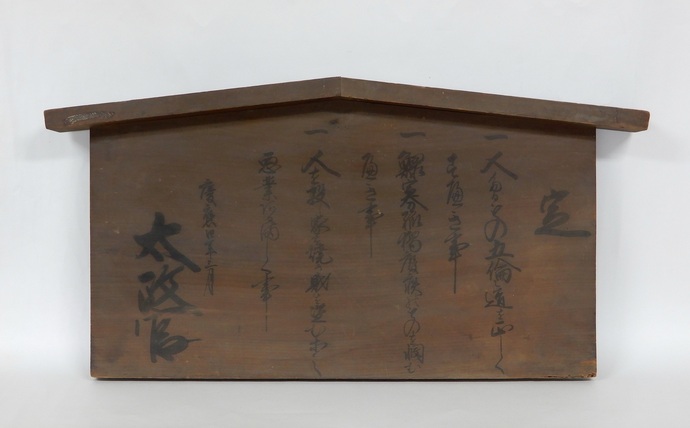 定
一 人たるもの五倫之道を正しく
すへき事
一 鰥寡孤獨癈疾のものを憫む
へき事
一 人を殺し家を焼財を盗む等之
悪業有間敷事
慶應四年三月
太政官